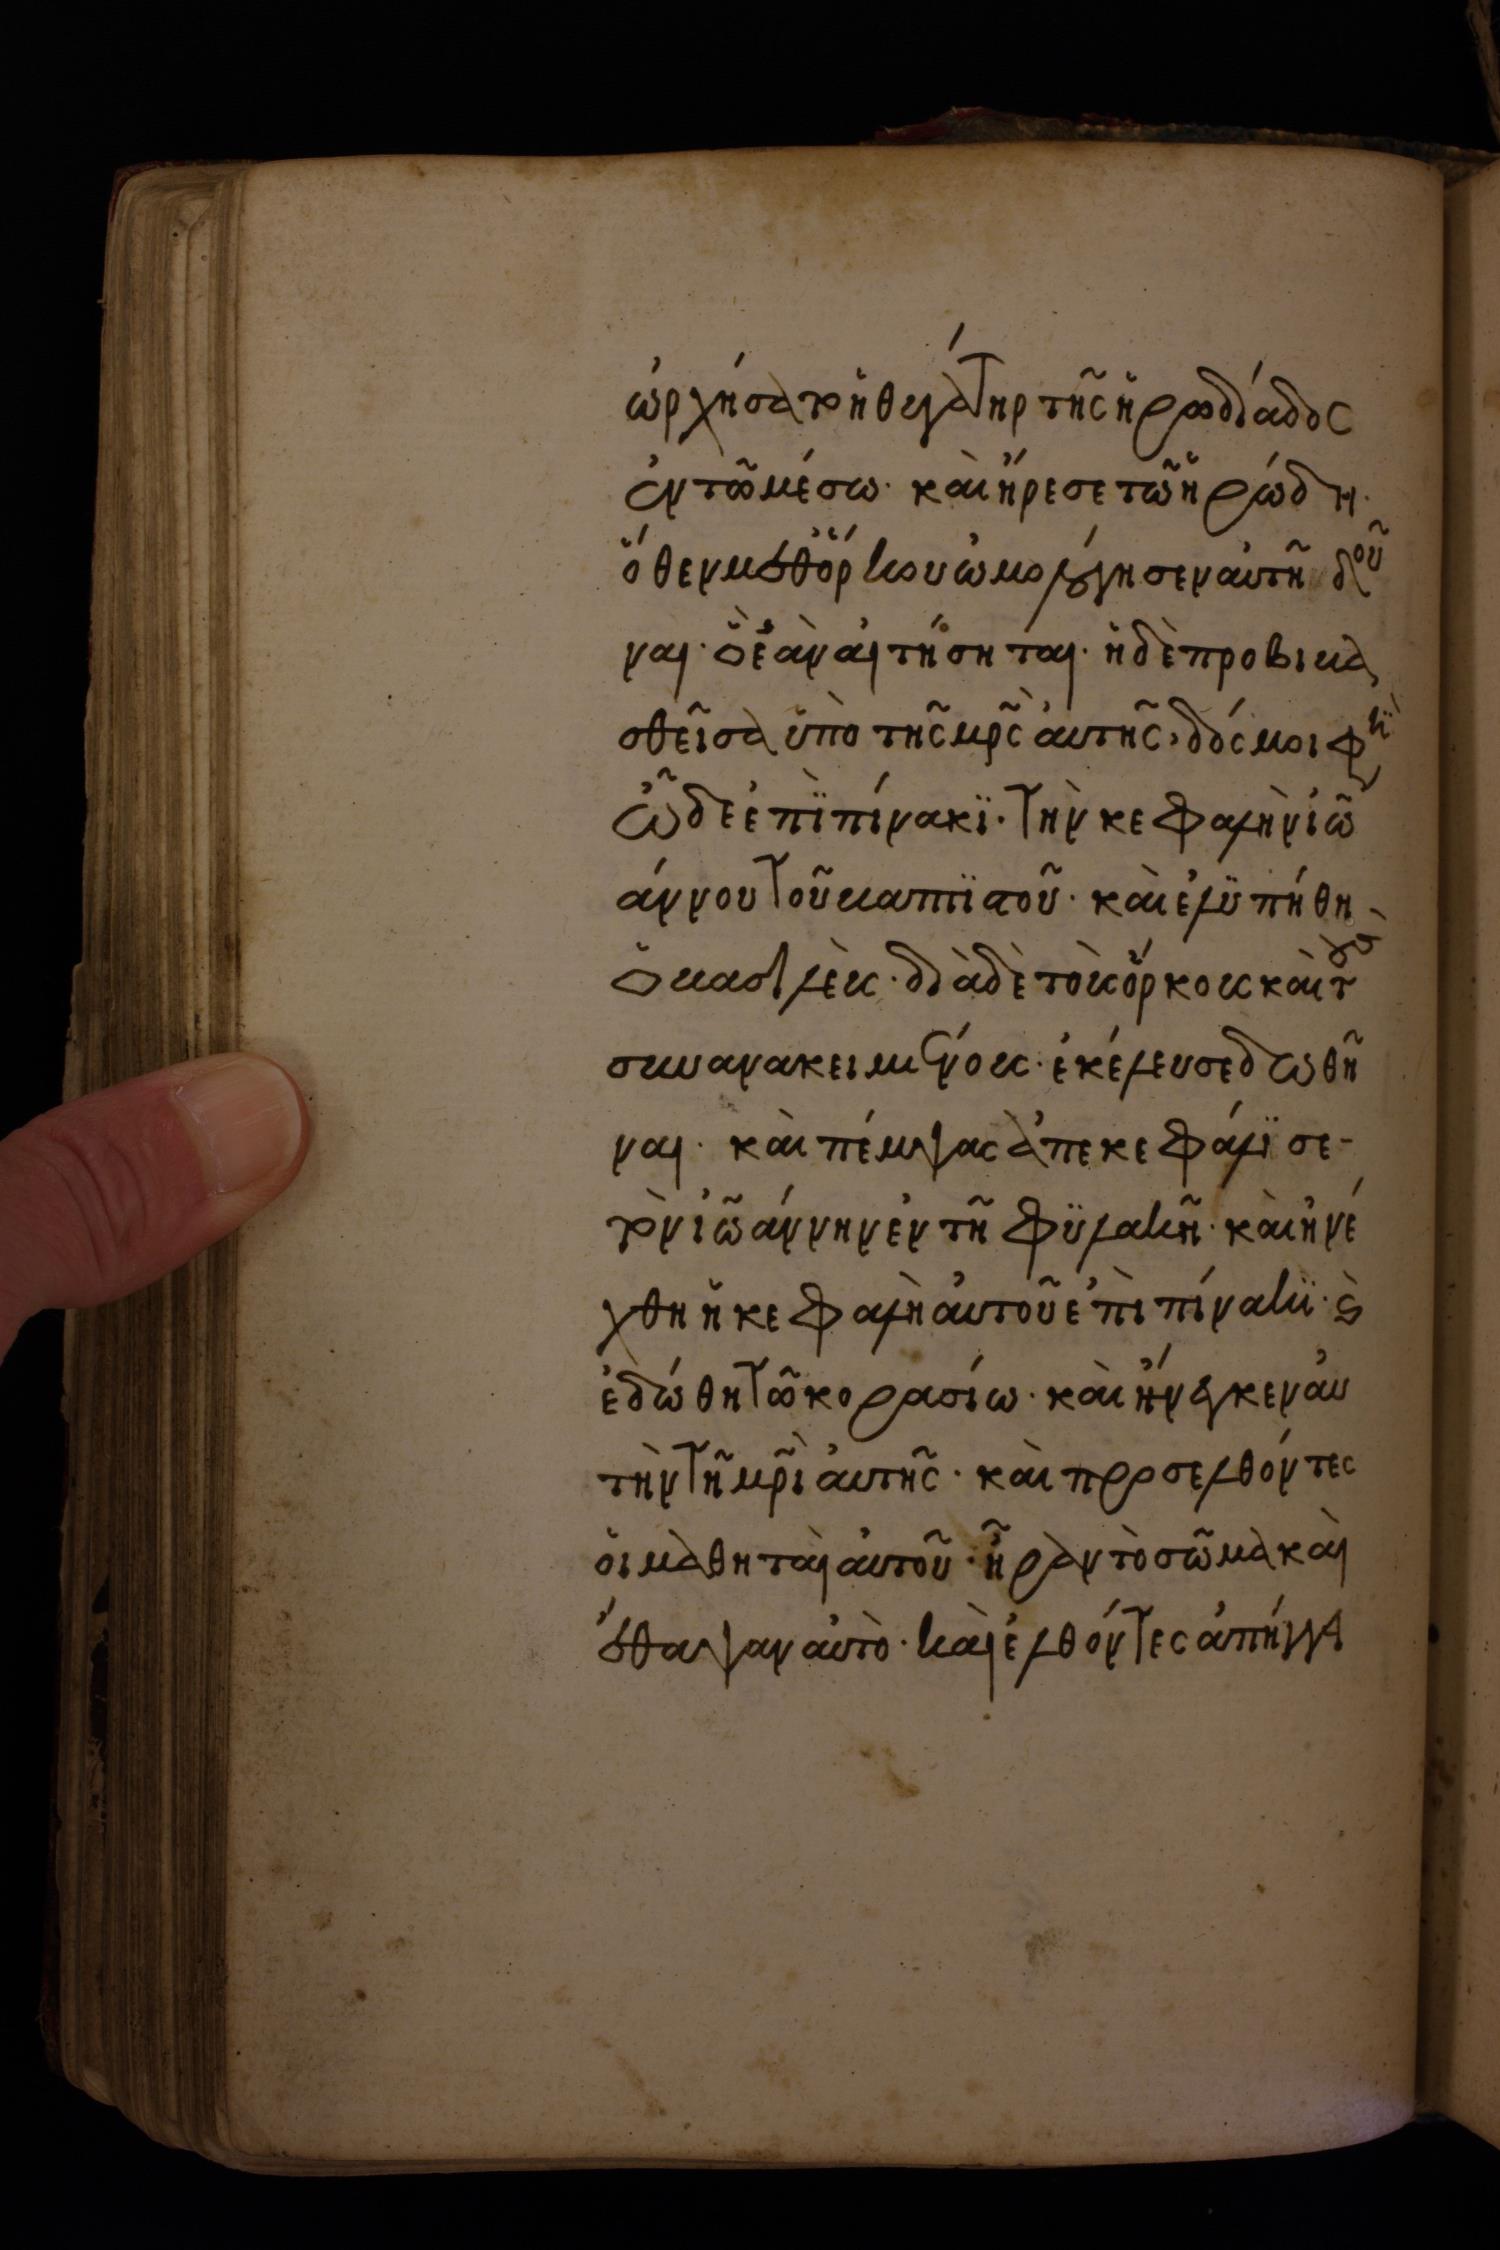 ὠρχήσατο ἡ θυγάτηρ τῆς ἡρωδιάδος
ἐν τῶ μέσω· καὶ ἤρεσε τῶ ἡρώδη·
ὅθεν μεθ ὅρκου ὡμολόγησεν αὐτῆ δοῦ
ναι· ὃ ἐὰν αἰτήσηται· ἡ δὲ προβιβα
σθεῖσα ὑπὸ τῆς μρ̃ς αὐτῆς, δός μοι φησὶ
ὧδε ἐπὶ πίνακϊ· τὴν κεφαλὴν ἰω
άννου τοῦ βαπτϊστοῦ· καὶ ἐλϋπήθη
ὁ βασιλεὺς· διὰ δὲ τοὺς ὅρκους καὶ τοὺς
συνανακειμένους· ἐκέλευσε δωθῆ
ναι· καὶ πέμψας ἀπεκεφάλϊσε-
τὸν ἰωάννην ἐν τῆ φϋλακῆ· καὶ ἠνέ
χθη ἡ κεφαλὴ αὐτοῦ ἐπὶ πίνακϊ· ϗ
ἐδώθη τῶ κορασίω· καὶ ἤνεγκεν αὐ
τὴν τῆ μρ̃ὶ αὐτῆς· καὶ προσελθόντες
οἱ μαθηταὶ αὐτοῦ· ἦραν τὸ σῶμα καὶ
ἔθαψαν αὐτὸ· καὶ ἐλθόντες ἀπήγγει